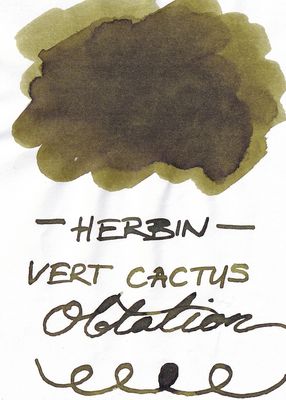 — HERBIN —
VERT CACTUS
Obtation